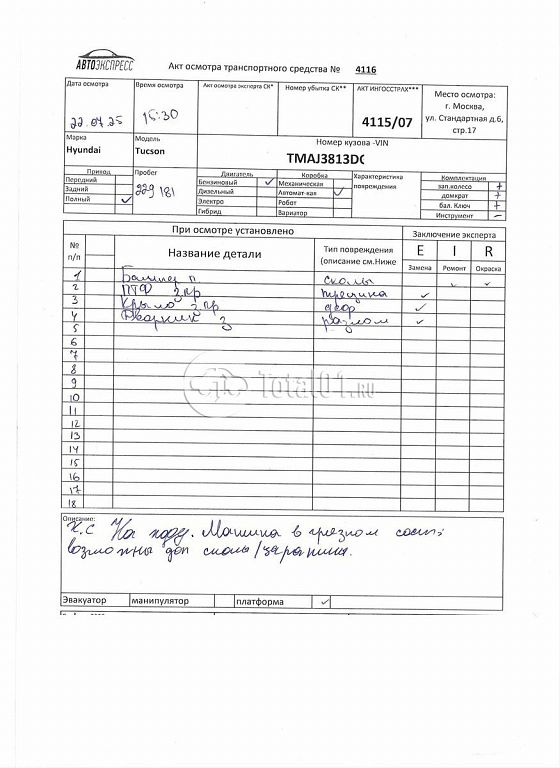 АВТОЭКСПРЕСС
Акт осмотра транспортного средства № 4116
Дата осмотра
22.07.25
Время осмотра
15:30
Акт осмотре эксперта СК*
Номер убытка СК**
АКТ ИНГОССТРАХ***
4115/07
Место осмотра:
г. Москва,
ул. Стандартная д.6,
стр.17
Марка
Hyundai
Модель
Tucson
Номер кузова -VIN
TMAJ3813DC
Привод
Передний
Задний
Полный ✓
Пробег
229 181
Двигатель
Бензиновый ✓
Дизельный
Электро
Гибрид
Коробка
Механическая
Автомат-кая ✓
Робот
Вариатор
Характеристика
повреждения
Комплектация
зап.колесо +
домкрат +
бал. Ключ +
Инструмент –
При осмотре установлено
Заключение эксперта
№
п/п
Название детали
Тип повреждения
(описание см.Ниже
E I R
Замена Ремонт Окраска
1 Бампер п сколы ✓ ✓
2 ПТФ п пр трещина ✓
3 Крыло п пр деф ✓
4 Дворник з разлом ✓
5
6
7
8
9
10
11
12
13
14
15
16
17
18
Total01.RU
Описание:
К.С На ходу. Машина в грязном сост;
возможны доп сколы/царапины.
Эвакуатор манипулятор платформа ✓